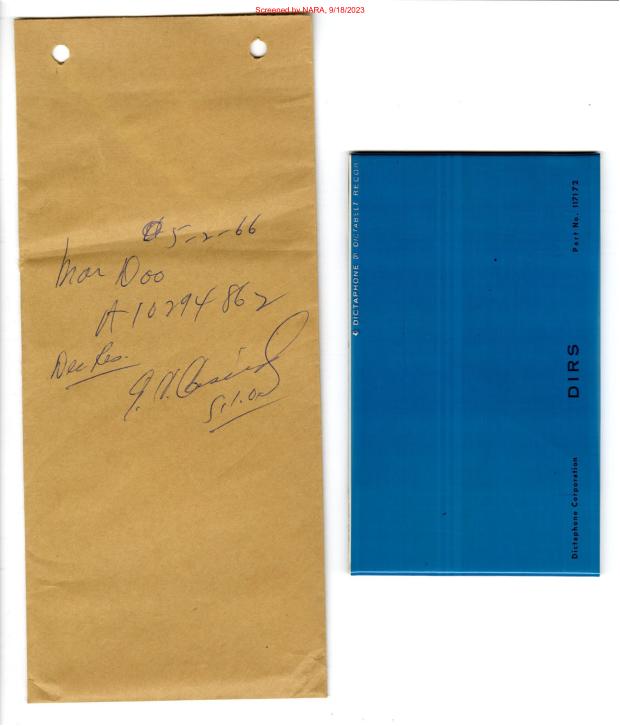 Screened by NARA, 9/18/2023
5-2-66
Mar Doo
A10294862
Dec Res.
S.I.O.
© DICTAPHONE ® DICTABELT RECOR
DIRS
Dictaphone Corporation
Part No. 117172